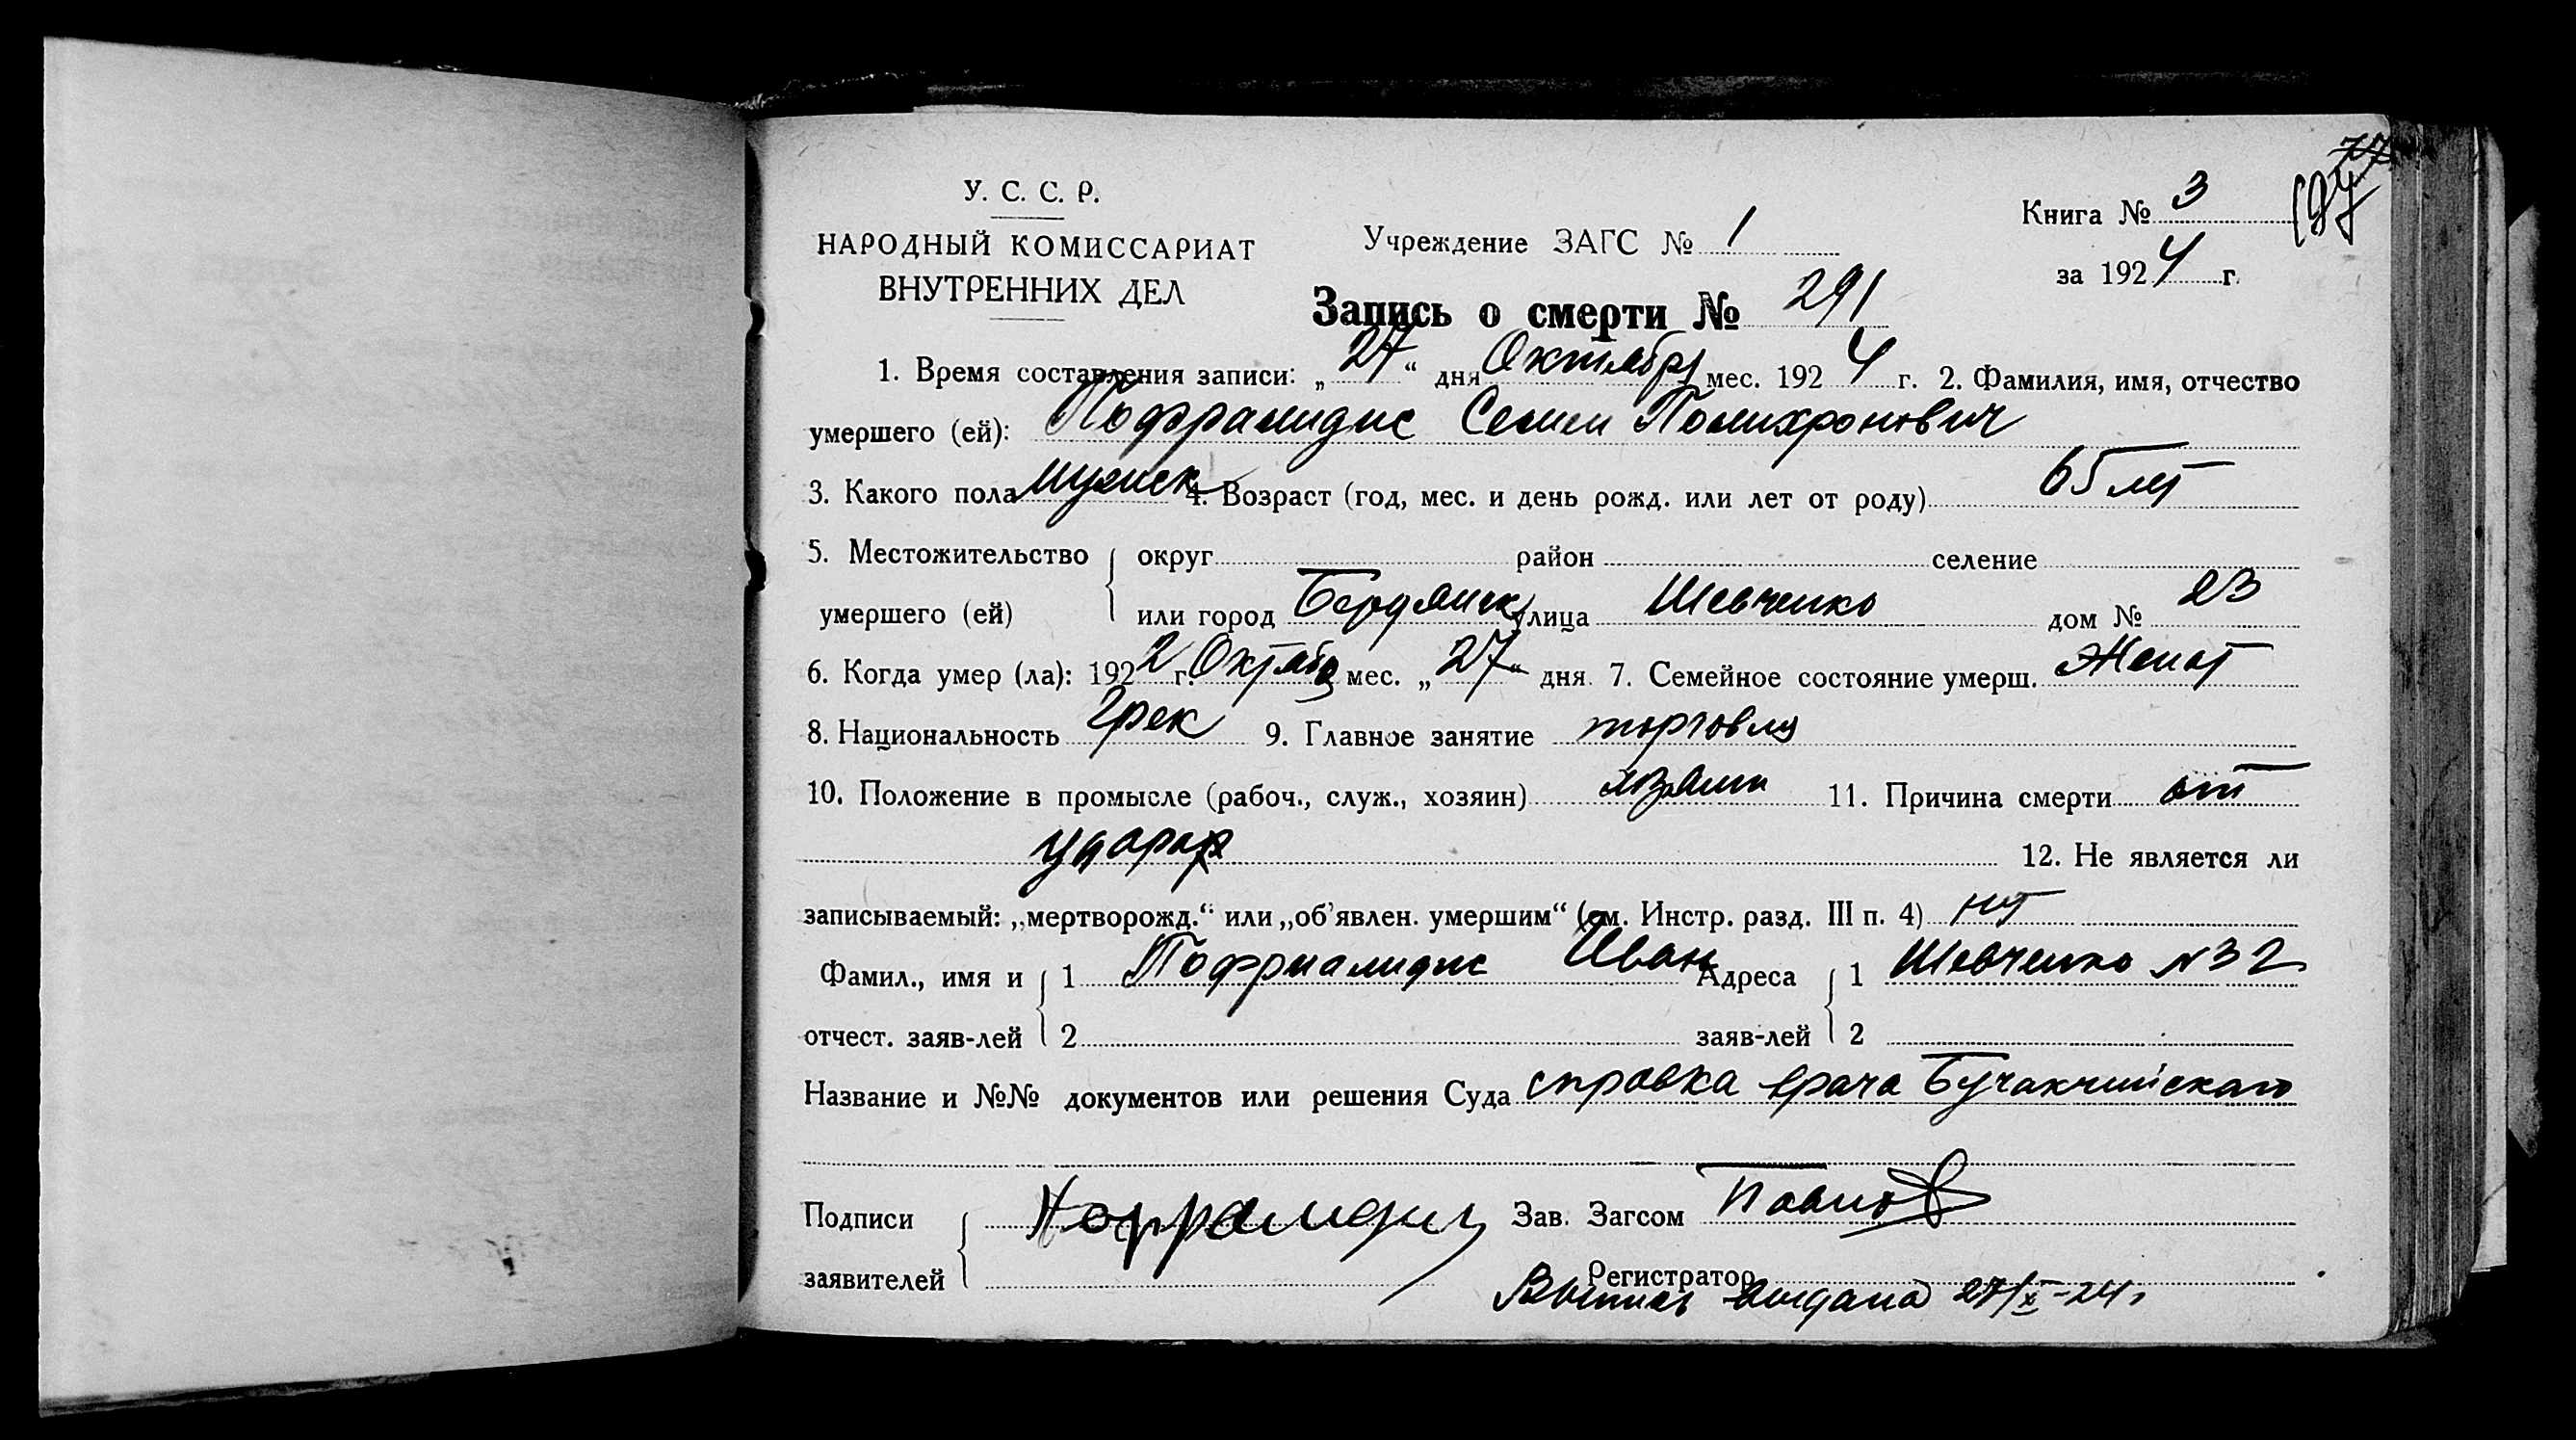 77
197
У. С. С. Р.
НАРОДНЫЙ КОМИССАРИАТ
ВНУТРЕННИХ ДЕЛ
Учреждение ЗАГС № 1
Книга № 3
за 1924 г.
Запись о смерти № 291
1. Время составления записи: „27“ дня Октября мес. 1924 г. 2. Фамилия, имя, отчество
умершего (ей): Семен Полихронович
3. Какого пола мужск 4. Возраст (год, мес. и день рожд. или лет от роду) 65 лет
5. Местожительство округ район селение
умершего (ей) или город Бердянск улица Шевченко дом № 23
6. Когда умер (ла): 1922 г. Октября мес. „27“ дня 7. Семейное состояние умерш. Женат
8. Национальность Грек 9. Главное занятие торговля
10. Положение в промысле (рабоч., служ., хозяин) хозяин 11. Причина смерти от
удара 12. Не является ли
записываемый: „мертворожд.“ или „об’явлен. умершим“ (см. Инстр. разд. III п. 4) нет
Фамил., имя и 1 Иван Адреса 1 Шевченко № 32
отчест. заяв-лей 2 заяв-лей 2
Название и №№ документов или решения Суда справка врача
Подписи Зав. Загсом Павлов
заявителей Регистратор
Выпись выдана 27/X-24 г.